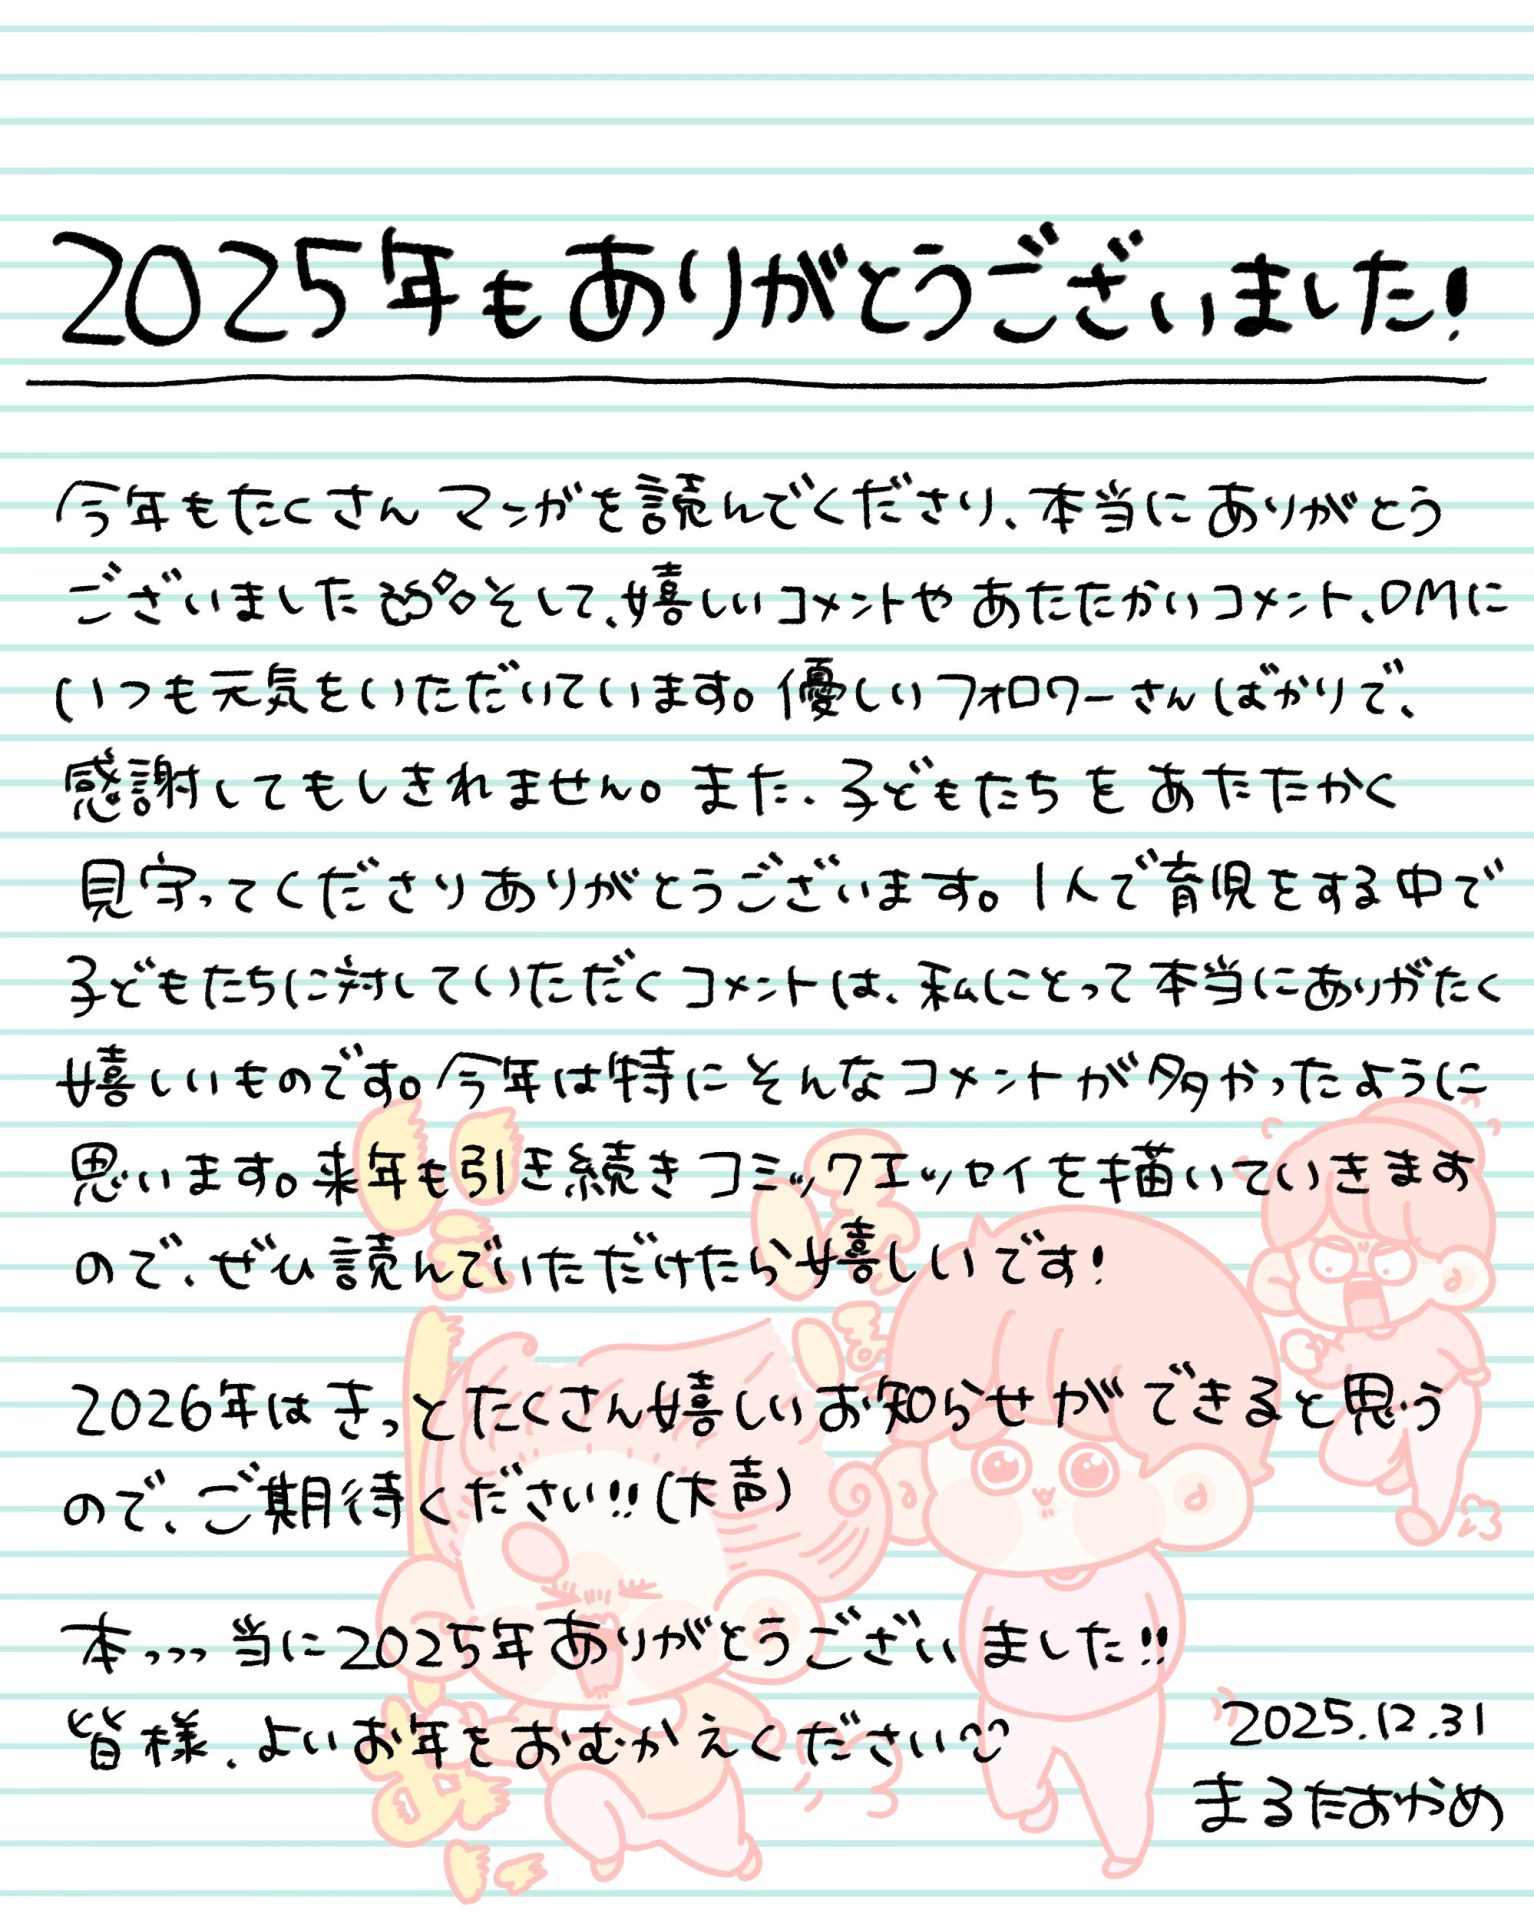 2025年もありがとうございました!
今年もたくさんマンガを読んでくださり、本当にありがとう
ございました そして、嬉しいコメントやあたたかいコメント、DMに
いつも元気をいただいています。優しいフォロワーさんばかりで、
感謝してもしきれません。また、子どもたちをあたたかく
見守ってくださりありがとうございます。1人で育児をする中で
子どもたちに対していただくコメントは、私にとって本当にありがたく
嬉しいものです。今年は特にそんなコメントが多かったように
思います。来年も引き続きコミックエッセイを描いていきます
ので、ぜひ読んでいただけたら嬉しいです!
2026年はきっとたくさん嬉しいお知らせができると思う
ので、ご期待ください!!(大声)
本っっっ当に2025年ありがとうございました!!
皆様、よいお年をおむかえください
2025.12.31
まるたおかめ